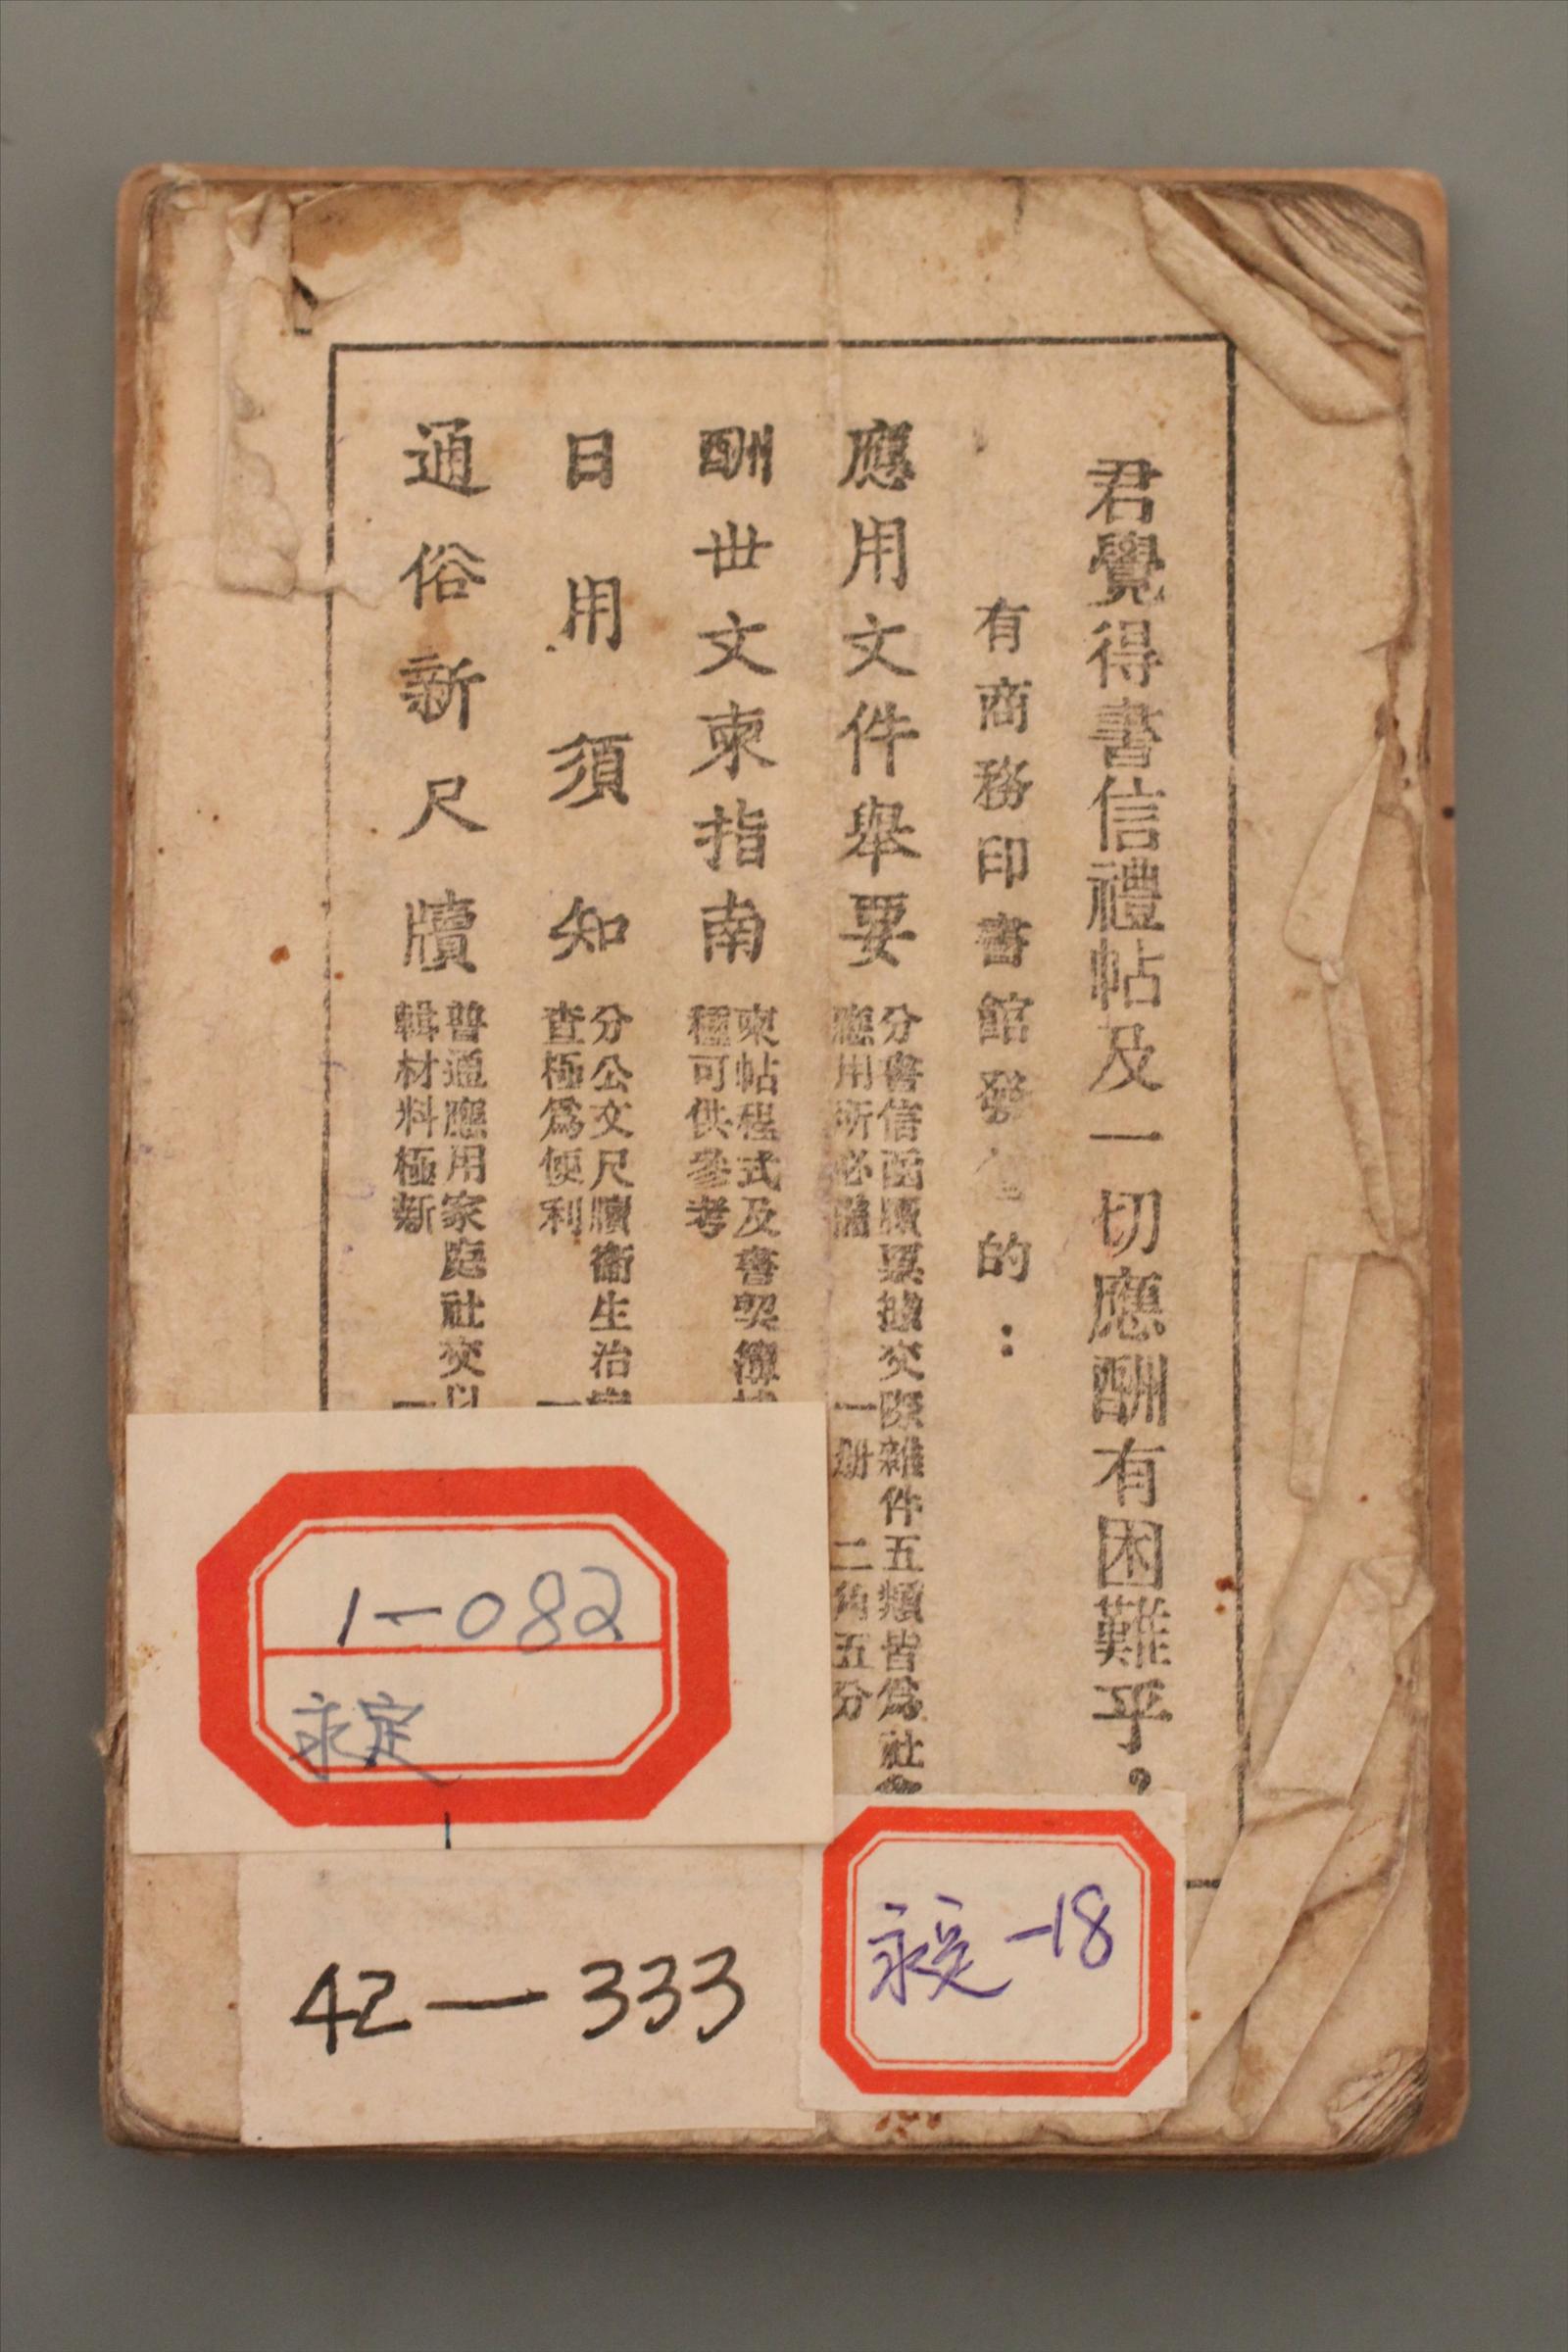 君覺得書信禮帖及一切應酬有困難乎，
有商務印書館發 的：
應用文件舉要
分書信函牘票據交際雜件五類皆爲社會
應用所必備
一册 二角五分
酬世文柬指南
柬帖程式及書契簿據
種可供參考
日用須知
分公文尺牘衞生治
查極爲便利
一
通俗新尺牘
普通應用家庭社交以
輯材料極新
一
1—082
永定
42—333
永定—18